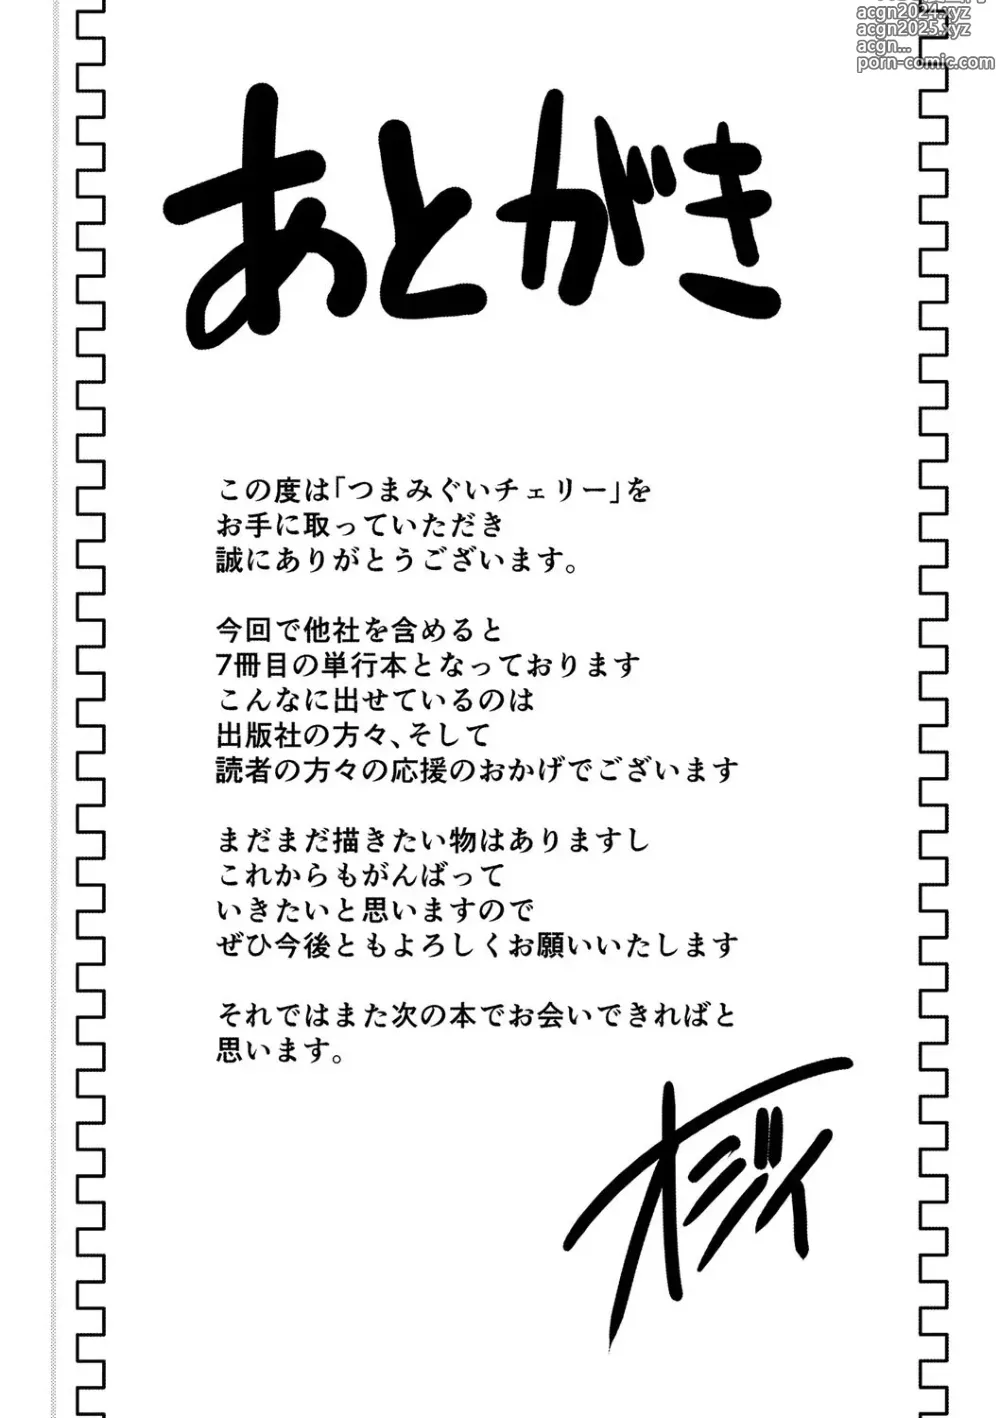 acgn2024.xyz
acgn2025.xyz
acgn...
porn-comic.com
あとがき
この度は「つまみぐいチェリー」を
お手に取っていただき
誠にありがとうございます。
今回で他社を含めると
7冊目の単行本となっております
こんなに出せているのは
出版社の方々、そして
読者の方々の応援のおかげでございます
まだまだ描きたい物はありますし
これからもがんばって
いきたいと思いますので
ぜひ今後ともよろしくお願いいたします
それではまた次の本でお会いできればと
思います。
オジイ